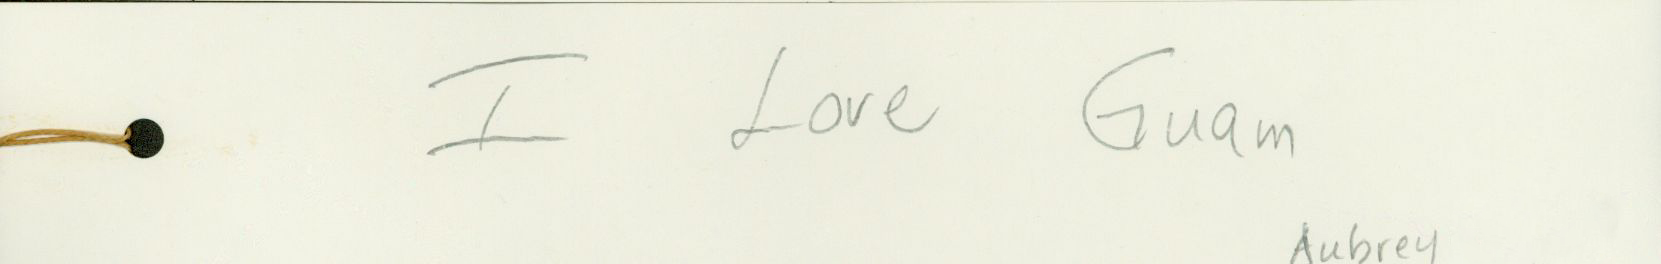 I Love Guam
Aubrey